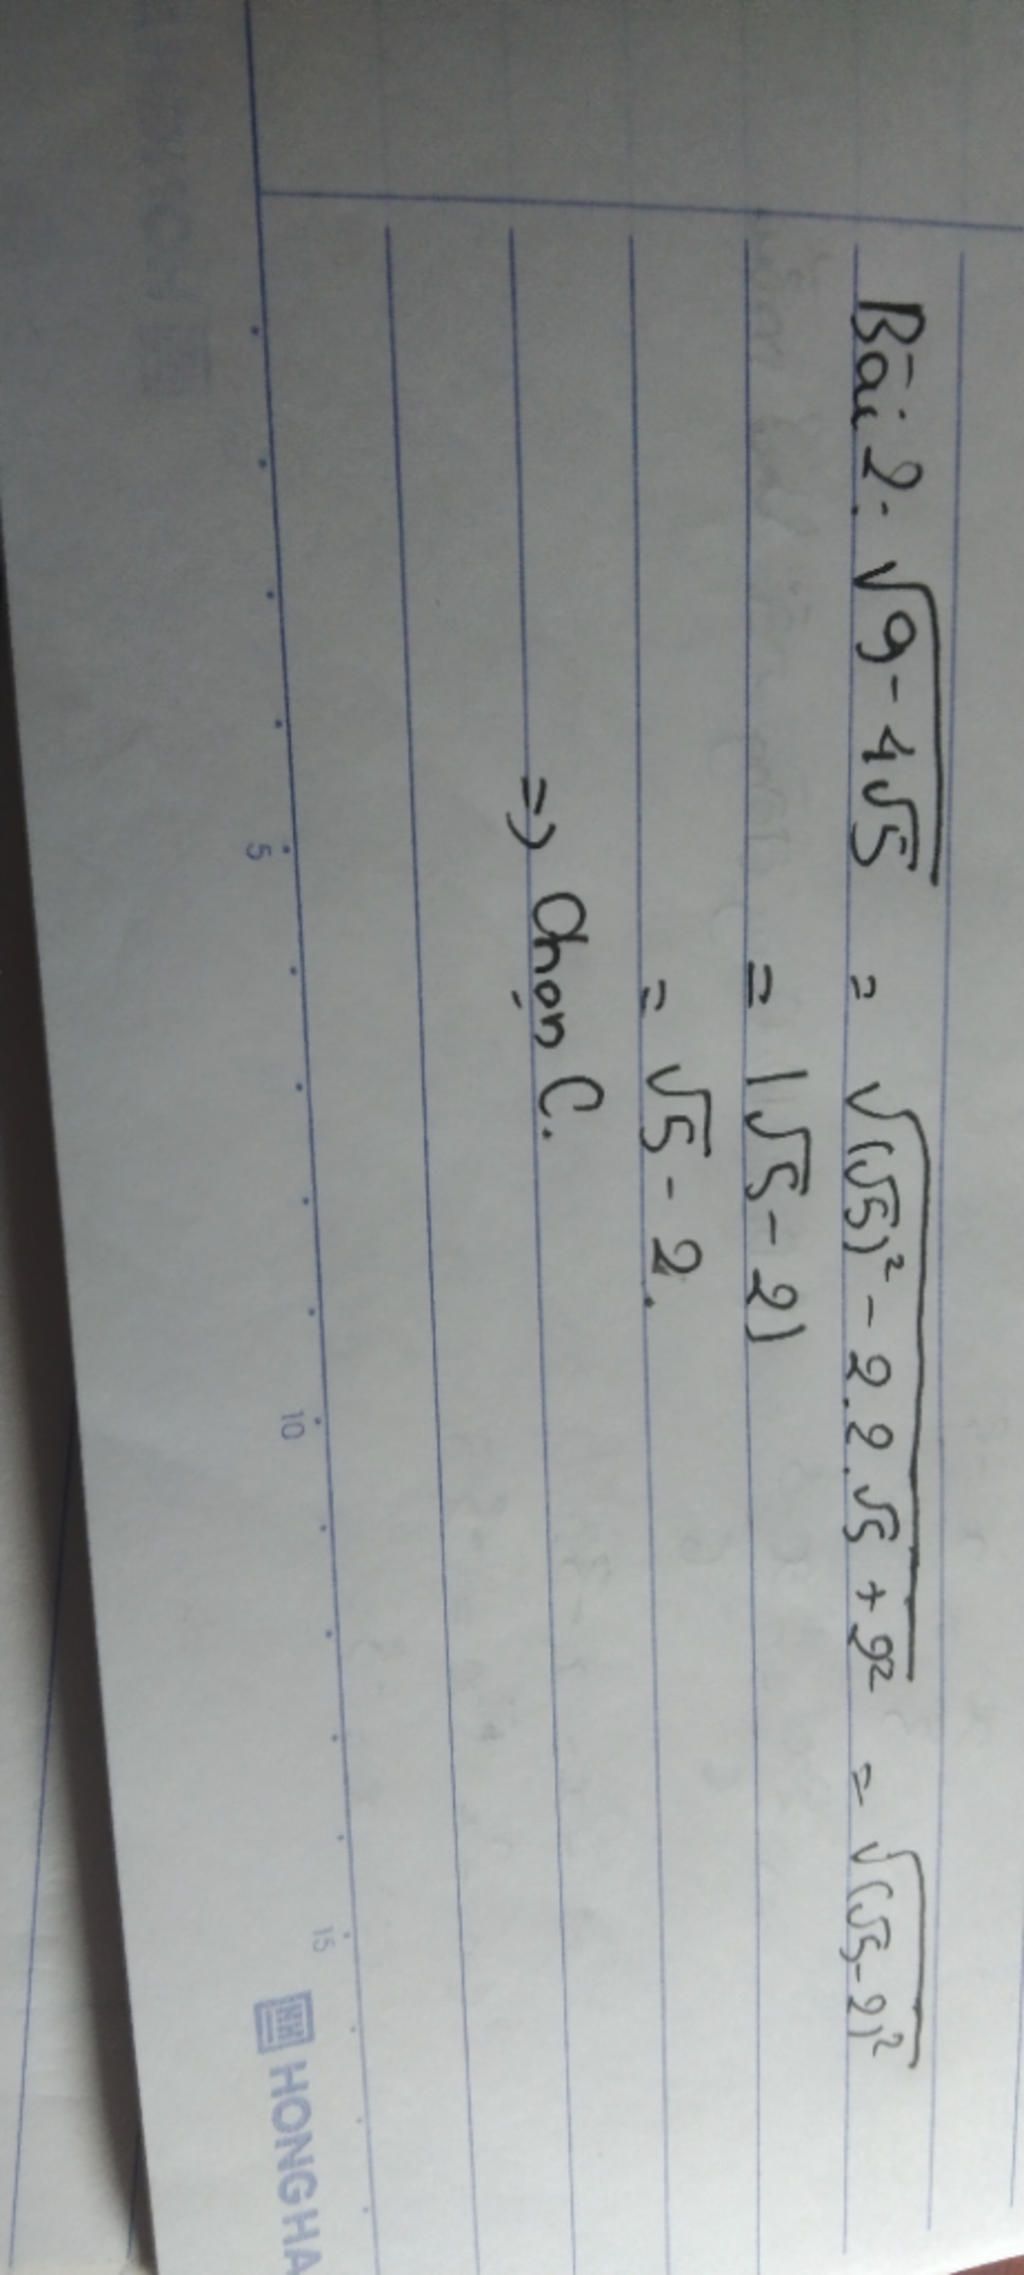 Bài 2. √9-4√5 = √(√5)² - 2.2.√5 + 2² = √(√5-2)²
= |√5 - 2|
= √5 - 2.
=> Chọn C.
5 10 15
HONG HA